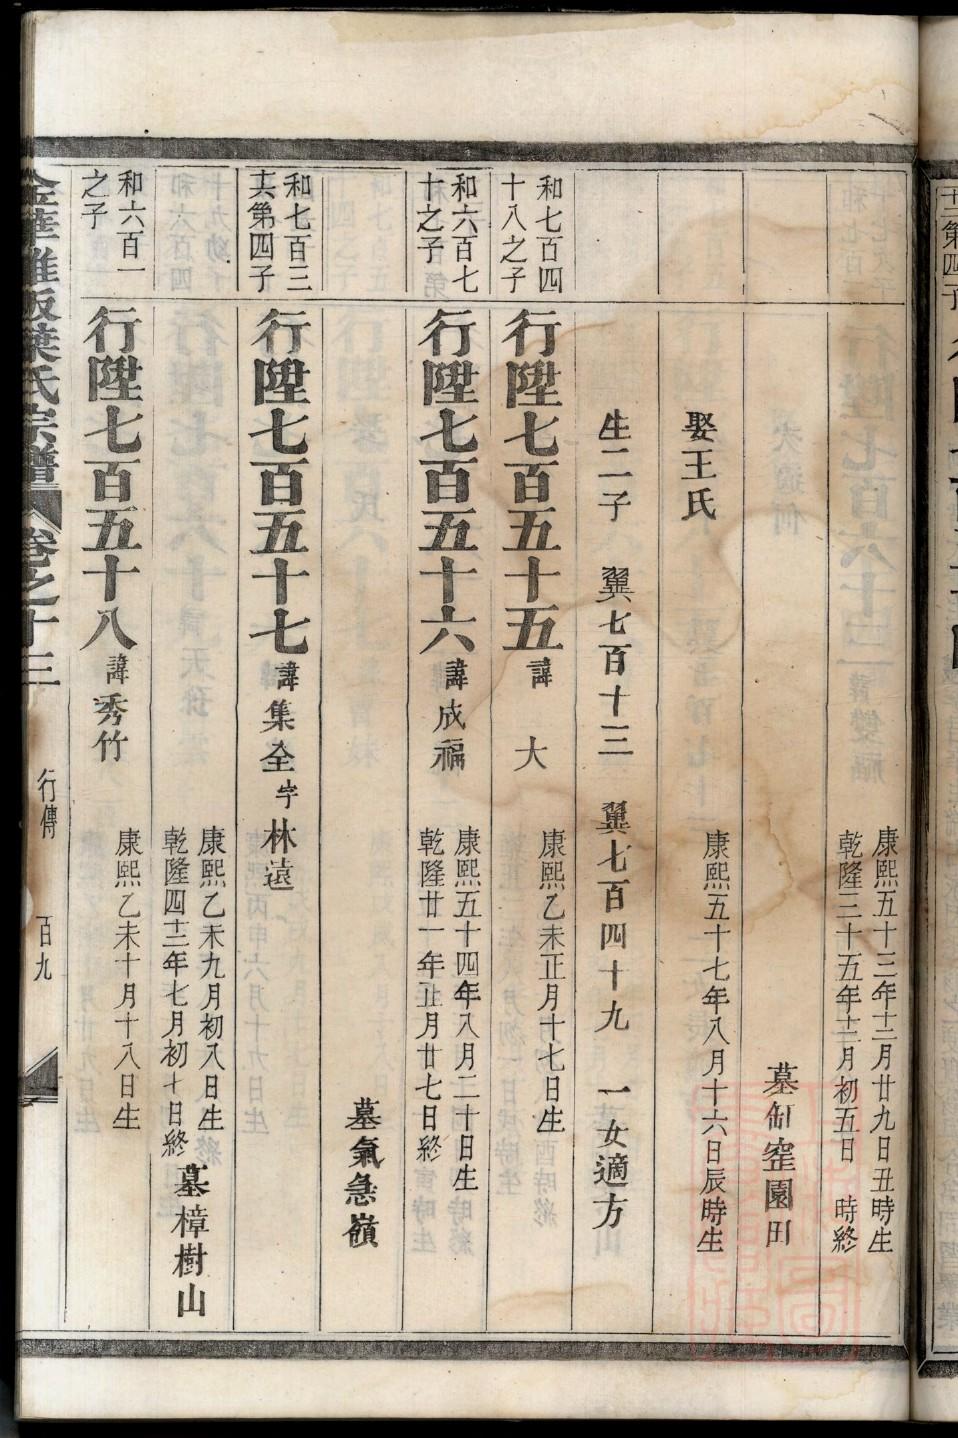 康熙五十三年十二月廿九日丑時生
乾隆三十五年十二月初五日　時終
墓缸窑園田
娶王氏
康熙五十七年八月十六日辰時生
生二子　翼七百十三　翼七百四十九　一女適方
和七百四
十八之子
行陞七百五十五
諱　大
康熙乙未正月十七日生
和六百七
十之子
行陞七百五十六
諱成福
康熙五十四年八月二十日生
乾隆廿一年正月廿七日終
墓氣急嶺
和七百三
其第四子
行陞七百五十七
諱集全字林遠
康熙乙未九月初八日生
乾隆四十三年七月初十日終
墓樟樹山
和六百一
之子
行陞七百五十八
諱秀竹
康熙乙未十月十八日生
葉氏宗譜
卷之十三
行傳
百九